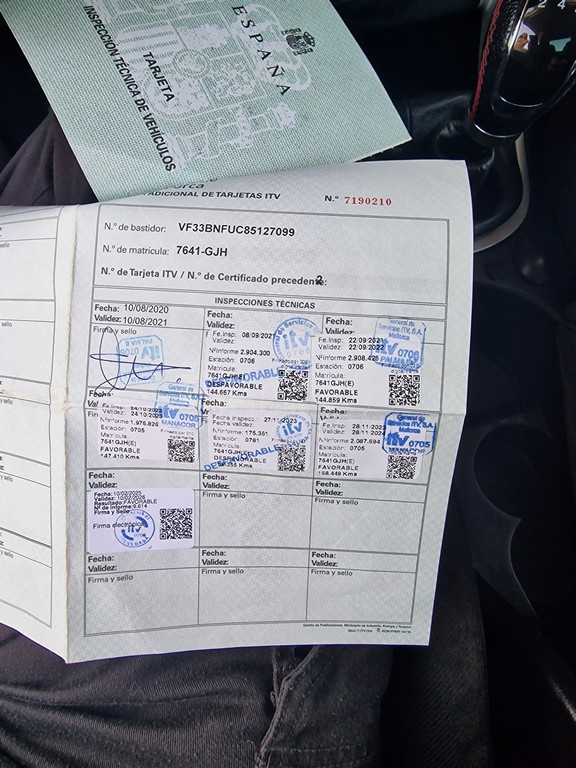 ESPAÑA
TARJETA
INSPECCIÓN TÉCNICA DE VEHÍCULOS
ADICIONAL DE TARJETAS ITV
N.º 7190210
N.º de bastidor: VF33BNFUC85127099
N.º de matrícula: 7641-GJH
N.º de Tarjeta ITV / N.º de Certificado precedente: 2
INSPECCIONES TÉCNICAS
Fecha: 10/08/2020
Validez: 10/08/2021
Firma y sello
Fecha:
Validez:
Fe.Insp: 08/09/2021
Validez:
Nºinforme 2.904.300
Estación: 0706
Matrícula:
7641GJH(E)
DESFAVORABLE
144.667 Kms
Fecha:
Validez:
Fe.Insp: 22/09/2021
Validez: 22/09/2022
Nºinforme 2.908.426
Estación: 0706
Matrícula:
7641GJH(E)
FAVORABLE
144.859 Kms
General de
Servicios ITV, S.A.
Mallorca
itv 0706
Fecha:
Fe.Insp: 24/10/2022
Validez: 24/10/2023
Nºinforme 1.976.826
Estación: 0705
Matrícula:
7641GJH(E)
FAVORABLE
MANACOR
Fecha inspecc.: 27/11/2023
Fecha validez:
Nºinforme: 175.351
Estación: 0781
Matrícula:
7641GJH(E)
DESFAVORABLE
Fe.Insp: 28/11/2023
Validez: 28/11/2024
Nºinforme 2.087.694
Estación: 0705
Matrícula:
7641GJH(E)
FAVORABLE
158.449 Kms
General de
Servicios ITV, S.A.
Mallorca
itv 0705
MANACOR
Fecha:
Validez:
Fecha: 10/02/2025
Validez: 10/02/2026
Resultado: FAVORABLE
Nº de informe: 9.614
Firma y sello
Firma electrónica
itv
Fecha:
Validez:
Firma y sello
Fecha:
Validez:
Firma y sello
Fecha:
Validez:
Firma y sello
Fecha:
Validez:
Firma y sello
Fecha:
Validez:
Firma y sello
Centro de Publicaciones. Ministerio de Industria, Energía y Turismo